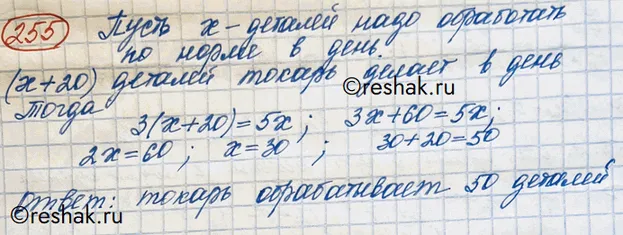 255 Пусть x - деталей надо обработать
по норме в день.
(x+20) деталей токарь делает в день
Тогда
3(x+20)=5x; 3x+60=5x;
2x=60; x=30; 30+20=50
Ответ: токарь обрабатывает 50 деталей
©reshak.ru
©reshak.ru
©reshak.ru